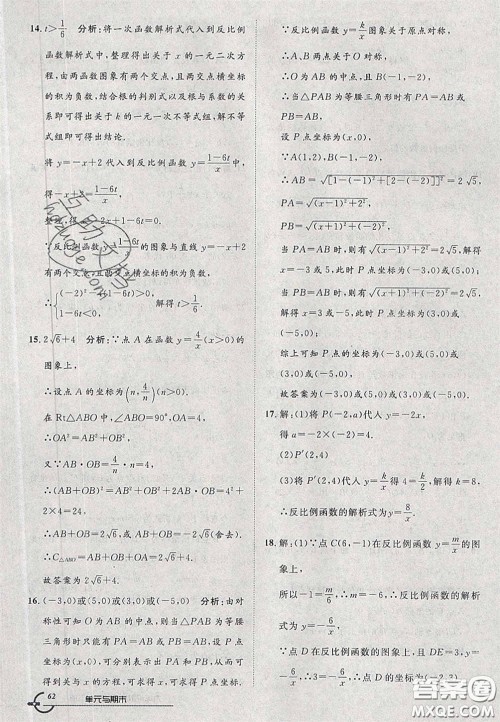 14. t>1/6 分析:将一次函数解析式代入到反比例
函数解析式中,整理得出关于x的一元二次方
程,由两函数图象有两个交点,且两交点横坐标
的积为负数,结合根的判别式以及根与系数的关
系即可得出关于k的一元一次不等式组,解不
等式组即可得出结论.
将y=-x+2代入到反比例函数y=(1-6t)/x中,
得:-x+2=(1-6t)/x,
整理,得
∵反比例函数y=(1-6t)/x的图象与直线y=-x+2
有两个交点,且两交点横坐标的积为负数,
∴{(-2)²-4(1-6t)>0, 1-6t<0, 解得t>1/6.
15. 2√6+4 分析:∵点A在函数y=4/x(x>0)的
图象上,
∴设点A的坐标为(n,4/n)(n>0).
在Rt△ABO中,∠ABO=90°,OA=4,
∴OA²=AB²+OB².
又∵AB·OB=4/n·n=4,
∴(AB+OB)²=AB²+OB²+2AB·OB=4²+
2×4=24.
∴AB+OB=2√6或AB+OB=-2√6(舍去).
∴C△ABO=AB+OB+OA=2√6+4.
故答案为2√6+4.
16. (-3,0)或(5,0)或(3,0)或(-5,0) 分析:由
对称性可知O为AB的中点,则当△PAB为等腰
三角形时只能有PA=AB或PB=AB,设P点
坐标为(x,0),可分别表示出PA和PB,从而可得
到关于x的方程,可求得x,可求得P点坐标.
62 单元与期末
∵反比例函数y=k/x图象关于原点对称,
∴A,B两点关于O对称,
∴O为AB的中点,且B(-1,-2),
∴当△PAB为等腰三角形时有PA=AB或
PB=AB,
设P点坐标为(x,0),
∵A(1,2),B(-1,-2),
∴AB=√([1-(-1)]²+[2-(-2)]²)=2√5,
PA=√((x-1)²+2²),
PB=√((x+1)²+(-2)²),
当PA=AB时,则有√((x-1)²+2²)=2√5,解得
x=-3或5,此时P点坐标为(-3,0)或(5,0);
当PB=AB时,则有√((x+1)²+(-2)²)=2√5,
解得x=3或-5,此时P点坐标为(3,0)或
(-5,0);
综上可知P点的坐标为(-3,0)或(5,0)或
(3,0)或(-5,0),
故答案为(-3,0)或(5,0)或(3,0)或(-5,0).
17. 解:(1)将P(-2,a)代入y=-2x,
得a=-2×(-2)=4.
(2)P'(2,4)
(3)将P'(2,4)代入y=k/x得4=k/2,解得k=8,
∴反比例函数的解析式为y=8/x.
18. 解:(1)∵点C(6,-1)在反比例函数y=m/x的图
象上,
所以-1=m/6,m=-6,∴反比例函数的解析式为
y=-6/x,
∵点D在反比例函数的图象上,且DE=3,∴3=
-6/x,x=-2,∴点D的坐标为(-2,3).